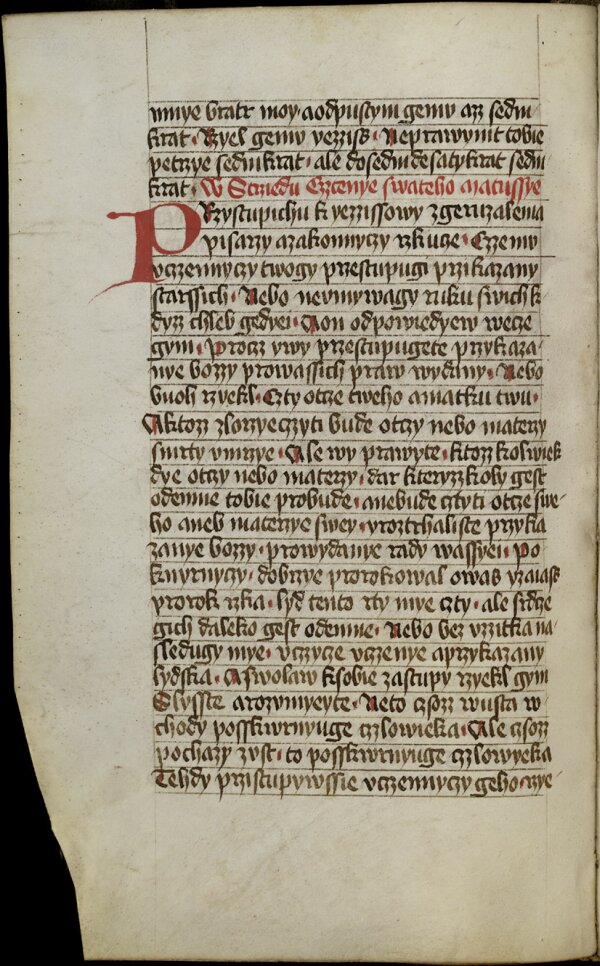 mnye bratr moy · a odpustym gemv az sedm
krat · Rzyel gemv yezziss · Neprawymit tobie
petrzye sedmkrat · ale do sedmdesatykrat sedm
krat · W Strziedu Cztenye swateho Matussye
PRzystupichu k yezzissowy z geruzalema
pisarzy a zakonnyczy rzkuce · Czemv
vczennyczy twogy przestupugi przikazany
starssich · Nebo nevmywagy ruku swich k
dyzz chleb gedye · A on odpowiedyew wece
gym · Procz y wy przestupugete przykaza
nye bozzy pro wassich praw wydany · Nebo
buoh rzyekl · Czty otcze tweho a matku twu ·
A ktozz zlorzyeczyti bude otczy nebo materzy
smrty vmrzye · Ale wy prawyte · ktozz kolwiek
dye otczy nebo materzy · dar kteryzz koly gest
odemne tobie probude · a nebude cztyti otcze swe
ho aneb materzye swey · y roztrhaliste przyka
zanye bozzy · pro wydanye rady wassye · Po
krytnyczy · dobrzye prorokowal o was yzaiass
prorok rzka · lyd tento rty mye czty · ale srdcze
gich daleko gest odemne · Nebo bez vzzitka na
sledugy mye · vczyce vczenye a przykazany
lydska · A swolaw k sobie zastupy rzyekl gym
Slysste a rozvmyeyte · Ne to czozz w usta w
chody posskwrnyuge czlowieka · Ale czozz
pochazy z vst · to posskwrnyuge czlowyeka
Tehdy przistupywssie vczennyczy geho rzye